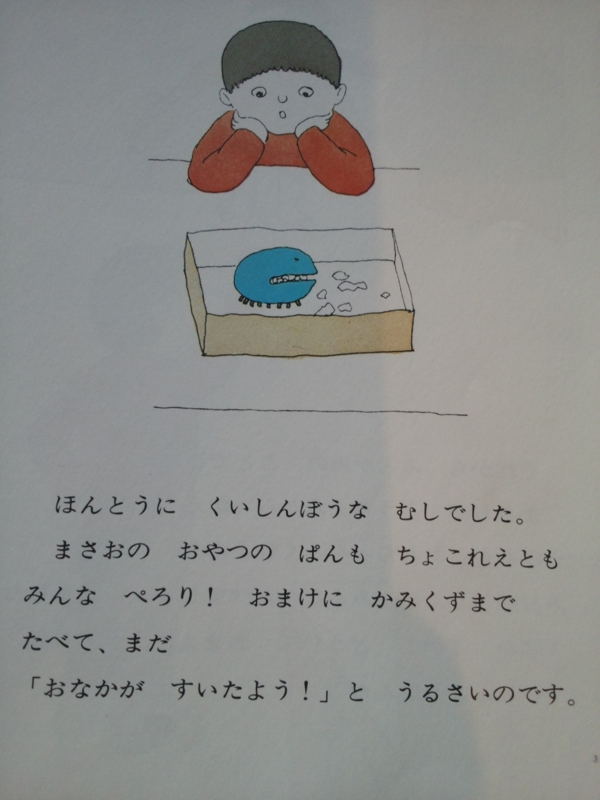 ほんとうに　くいしんぼうな　むしでした。
まさおの　おやつの　ぱんも　ちょこれえとも
みんな　ぺろり！　おまけに　かみくずまで
たべて、まだ
「おなかが　すいたよう！」と　うるさいのです。
3